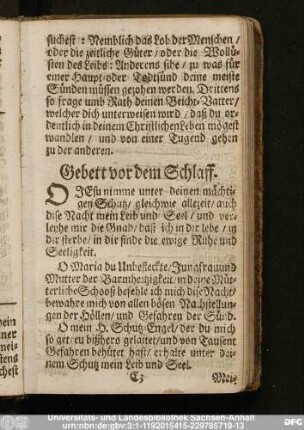 suchest: Nemblich das Lob der Menschen /
oder die zeitliche Güter / oder die Wollü-
sten des Leibs: Anderens sihe / zu was für
einer Haupt- oder Todtsünd deine meiste
Sünden müssen gezohen werden. Drittens
so frage umb Rath deinen Beicht-Vatter /
welcher dich unterweisen wird / daß du or-
dentlich in deinem Christlichen Leben mögest
wandlen / und von einer Tugend gehen
zu der anderen.
Gebett vor dem Schlaff.
O JEsu nimme unter deinen mächti-
gen Schutz / gleichwie allezeit / auch
dise Nacht mein Leib und Seel / und ver-
leyhe mir die Gnad / daß ich in dir lebe / in
dir sterbe / in dir finde die ewige Ruhe und
Seeligkeit.
O Maria du Unbefleckte / Jungfrau und
Mutter der Barmhertzigkeit / in deine Müt-
terliche Schooß befehle ich mich dise Nacht /
bewahre mich von allen bösen Nachstellun-
gen der Höllen / und Gefahren der Sünd.
O mein H. Schutz-Engel / der du mich
so getreu bißhero gelaitet / und von Tausent
Gefahren behütet hast / erhalte unter dei-
nem Schutz mein Leib und Seel.
Universitäts- und Landesbibliothek Sachsen-Anhalt
urn:nbn:de:gbv:3:1-1192015415-229785719-13